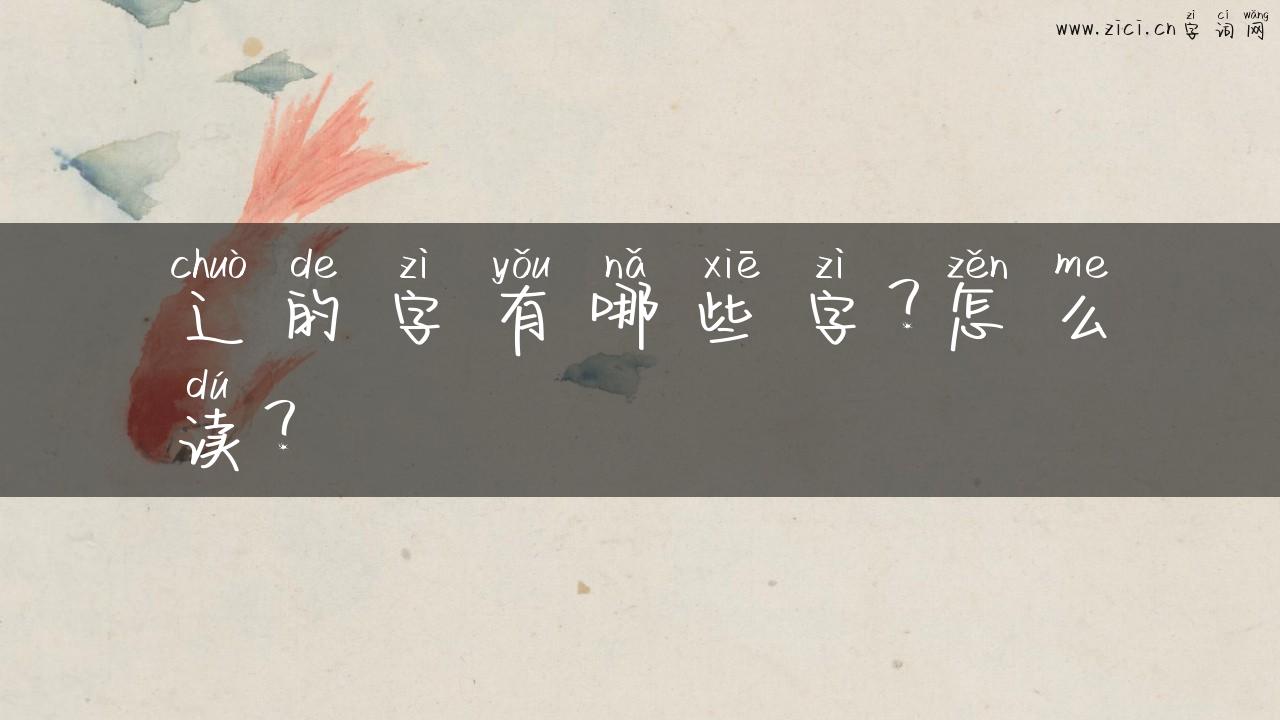 zì cí wǎng
www.zici.cn 字 词 网
chuò de zì yǒu nǎ xiē zì zěn me
辶 的 字 有 哪 些 字 ? 怎 么
dú
读 ?